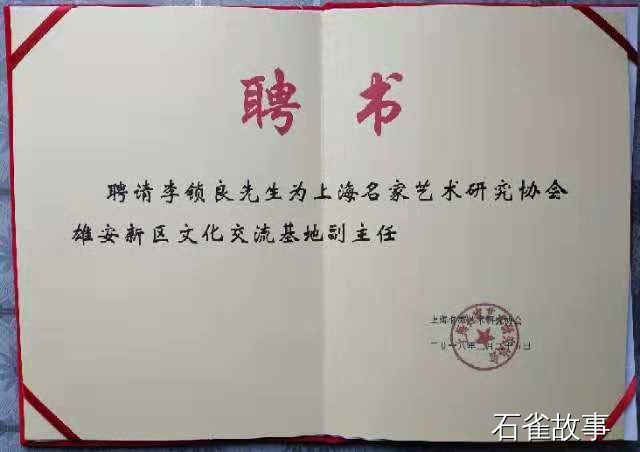 聘书
聘请李锁良先生为上海名家艺术研究协会
雄安新区文化交流基地副主任
上海名家艺术研究协会
石雀故事